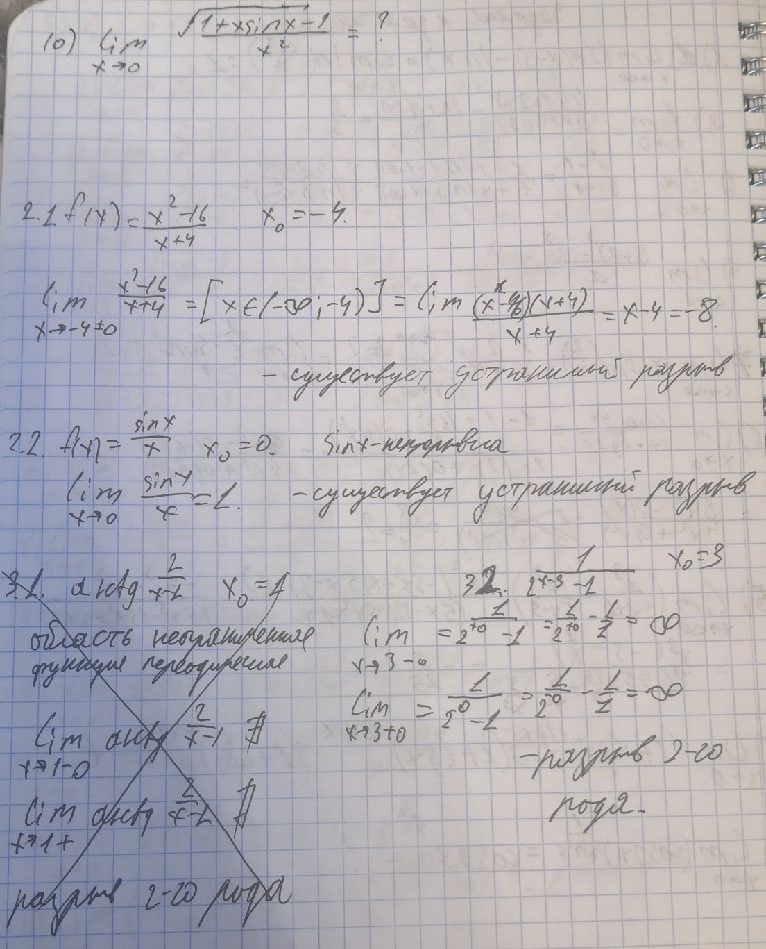 10) lim x→0 √(1+xsinx-1)/x² = ?
2.1 f(x) = (x²-16)/(x+4) x₀ = -4.
lim x→-4±0 (x²-16)/(x+4) = [x∈(-∞;-4)] = lim (x-4)(x+4)/(x+4) = x-4 = -8.
- существует устранимый разрыв
2.2. f(x) = sinx/x x₀ = 0. sinx-непрерывна
lim x→0 sinx/x = 1. - существует устранимый разрыв
3.1. arctg 2/(x-1) x₀ = 1
область
функции
lim x→1-0 arctg 2/(x-1) ∄
lim x→1+ arctg 2/(x-1) ∄
разрыв 2-го рода
32. 1/(2^(x-3)-1) x₀=3
lim x→3-0 = 1/(2^(+0)-1) = 1/2^(+0) - 1/1 = ∞
lim x→3+0 = 1/(2^0-1) = 1/2^0 - 1/1 = ∞
- разрыв 2-го
рода.